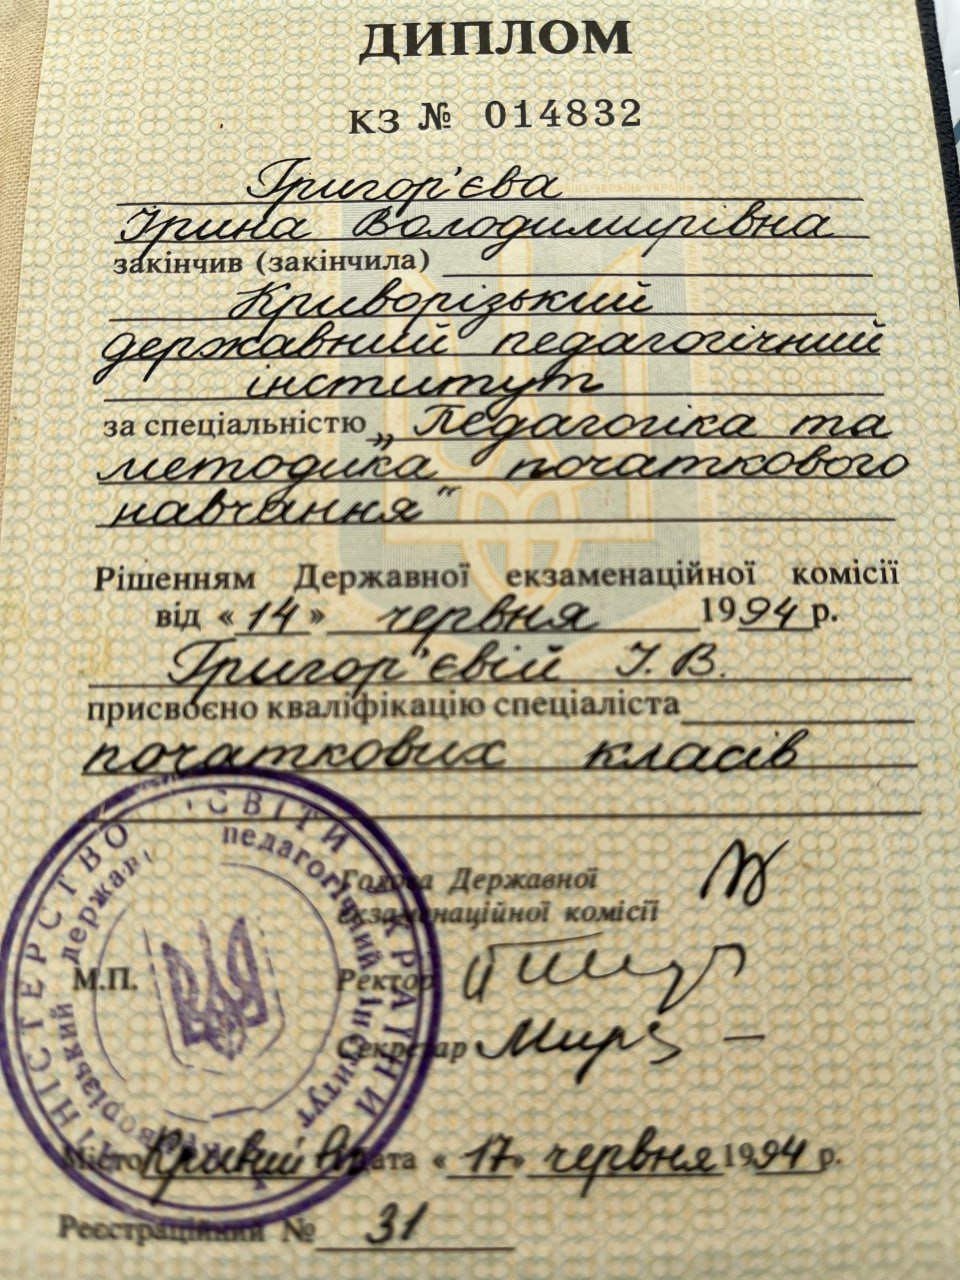 ДИПЛОМ
КЗ № 014832
Григор'єва
Ірина Володимирівна
закінчив (закінчила)
Криворізький
державний педагогічний
інститут
за спеціальністю „Педагогіка та
методика початкового
навчання"
Рішенням Державної екзаменаційної комісії
від «14» червня 1994 р.
Григор'євій І. В.
присвоєно кваліфікацію спеціаліста
початкових класів
Голова Державної
екзаменаційної комісії
М.П.
Ректор
Секретар
Місто Кривий Ріг Дата «17» червня 1994 р.
Реєстраційний № 31
МІНІСТЕРСТВО ОСВІТИ УКРАЇНИ
Криворізький державний педагогічний інститут